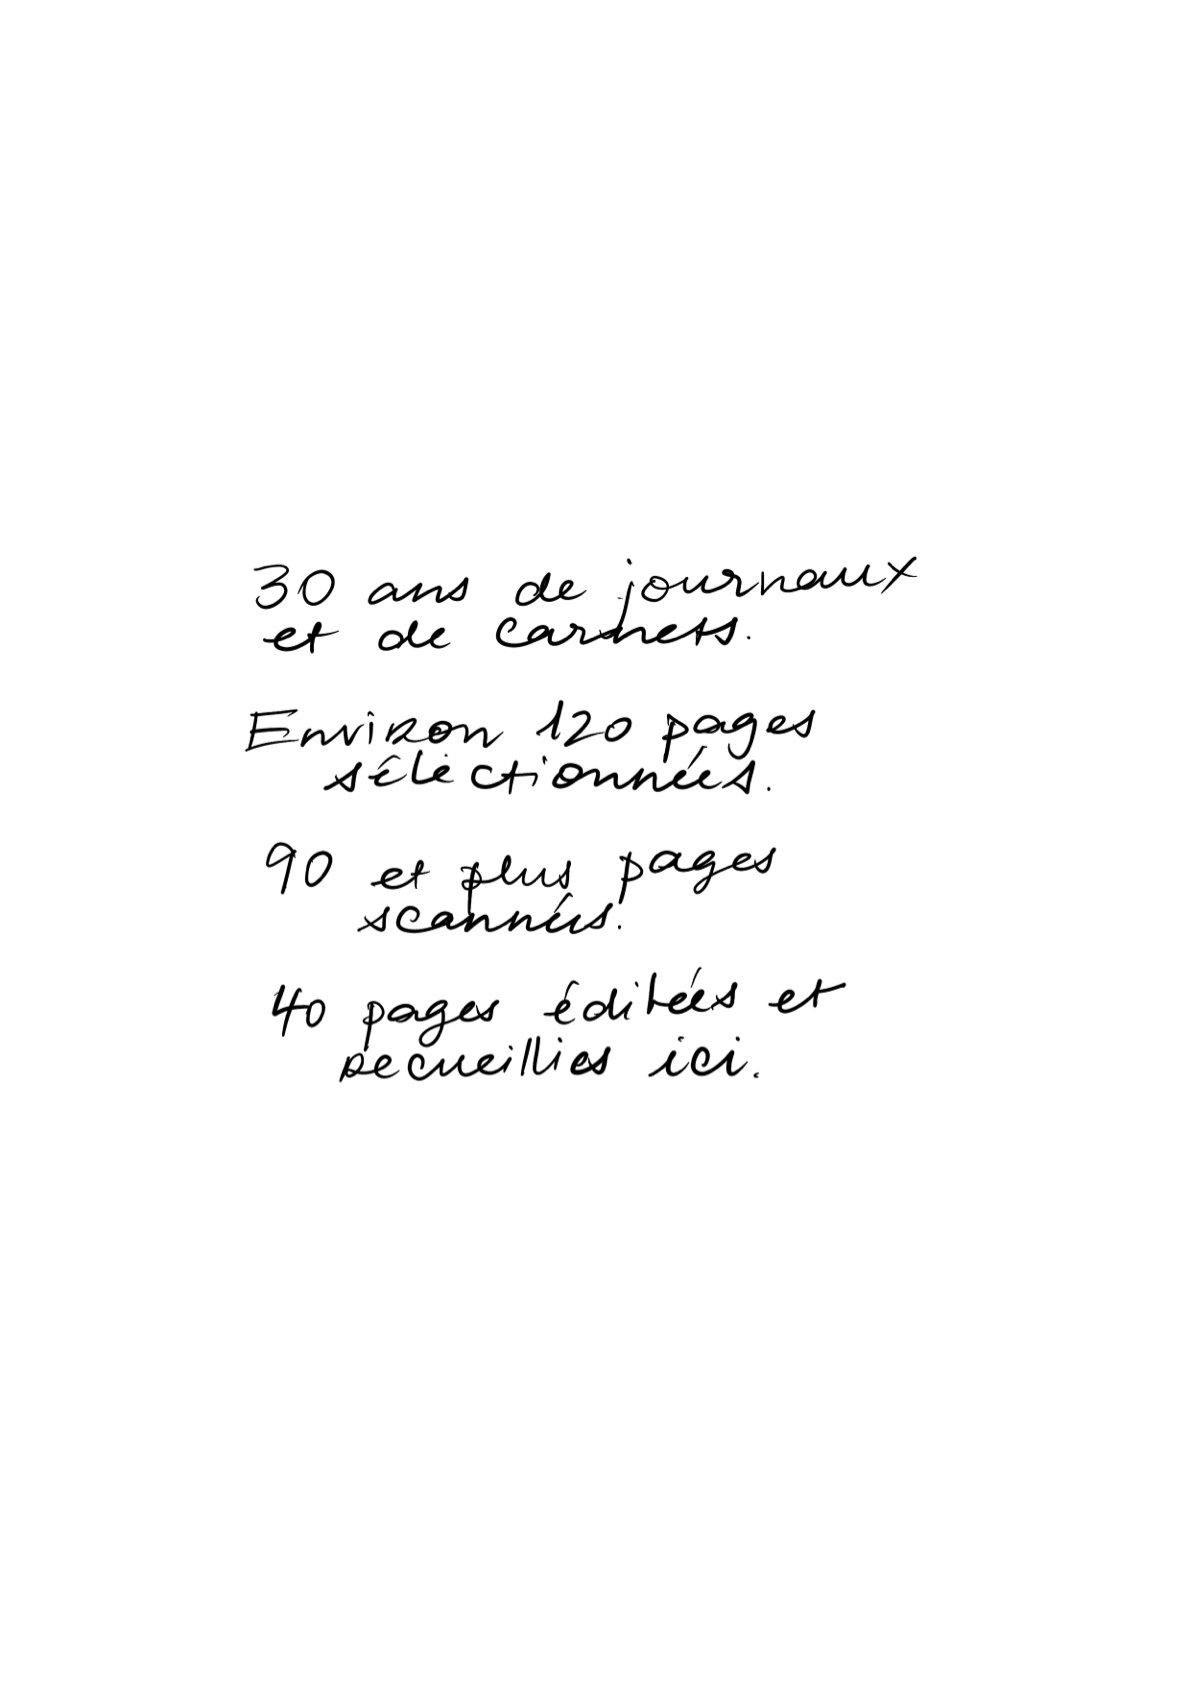 30 ans de journaux
et de carnets.
Environ 120 pages
sélectionnées.
90 et plus pages
scannées.
40 pages éditées et
recueillies ici.